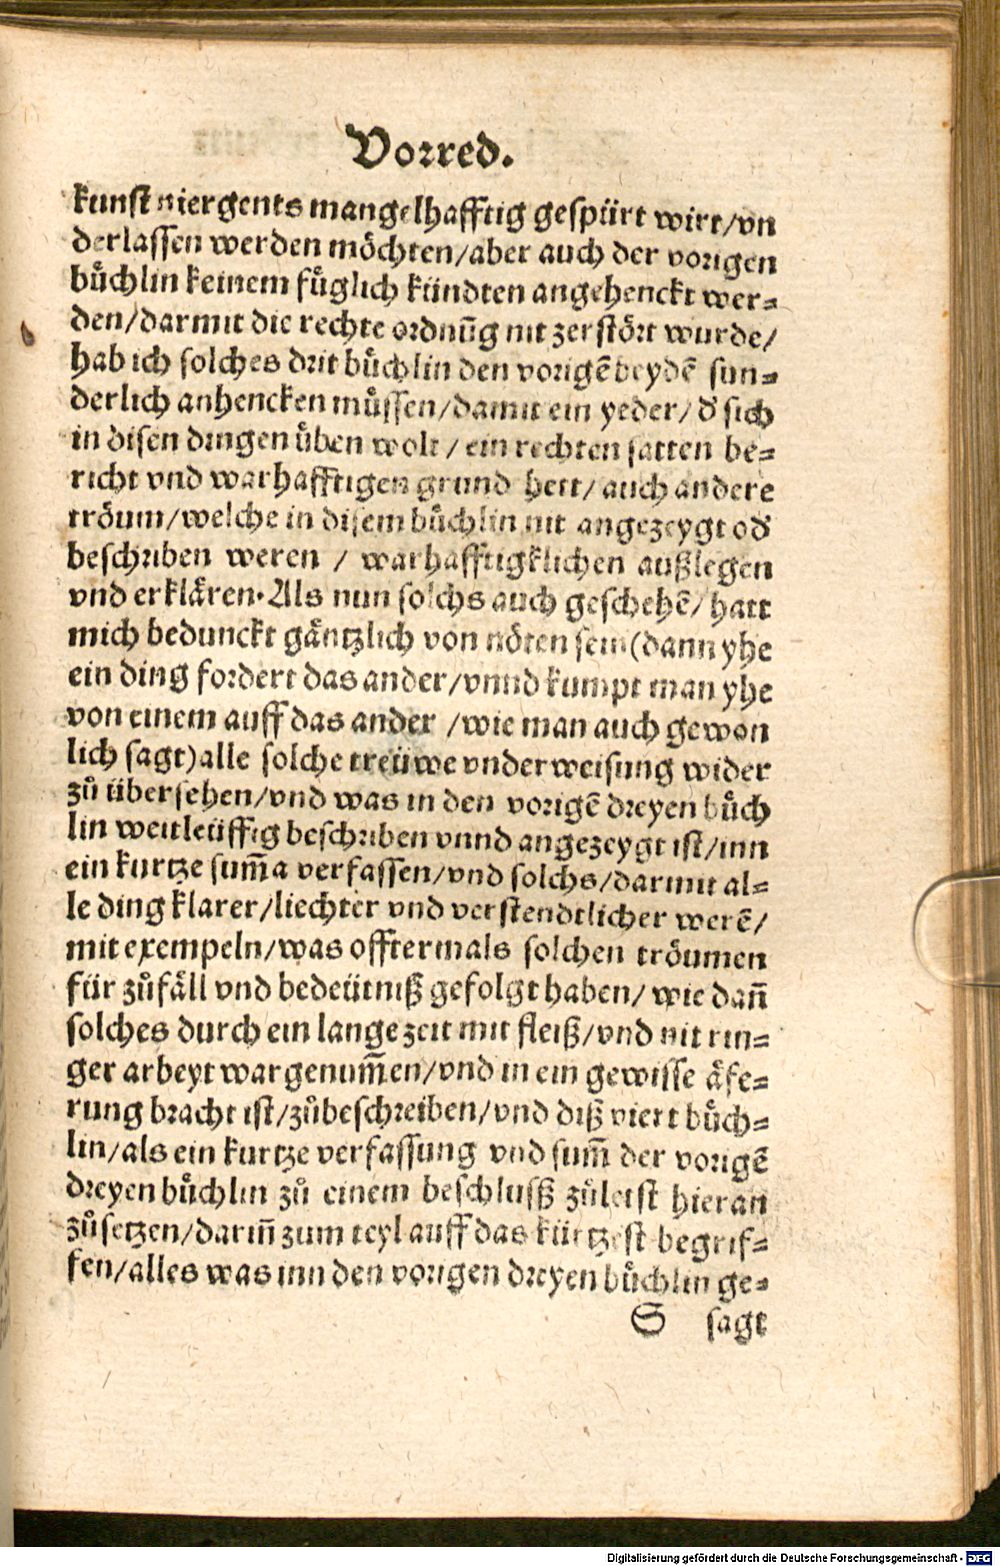 Vorred.
kunst niergents mangelhafftig gespürt wirt/vn
derlassen werden möchten/aber auch der vorigen
bůchlin keinem fůglich kündten angehenckt wer⸗
den/darmit die rechte ordnūg nit zerstört wurde/
hab ich solches drit bůchlin den vorigē beydē sun⸗
derlich anhencken můssen/damit ein yeder/d' sich
in disen dingen üben wolt/ein rechten satten be⸗
richt vnd warhafftigen grund hett/auch andere
tröum/welche in disem bůchlin nit angezeygt od'
beschriben weren / warhafftigklichen außlegen
vnd erklären. Als nun solchs auch geschehē/hatt
mich bedunckt gäntzlich von nöten sein(dann yhe
ein ding fordert das ander/vnnd kumpt man yhe
von einem auff das ander /wie man auch gewon
lich sagt)alle solche treüwe vnderweisung wider
zů übersehen/vnd was in den vorigē dreyen bůch
lin weitleüffig beschriben vnnd angezeygt ist/inn
ein kurtze sum̄a verfassen/vnd solchs/darmit al⸗
le ding klarer/liechter vnd verstendtlicher werē/
mit exempeln/was offtermals solchen tröumen
für zůfäll vnd bedeütniß gefolgt haben/wie dañ
solches durch ein lange zeit mit fleiß/vnd nit rin⸗
ger arbeyt wargenum̄en/vnd in ein gewisse äfe⸗
rung bracht ist/zůbeschreiben/vnd diß viert bůch⸗
lin/als ein kurtze verfassung vnd sum̄ der vorigē
dreyen bůchlin zů einem beschlusß zůletst hieran
zůsetzen/darin̄ zum teyl auff das kürtzest begrif⸗
fen/alles was inn den vorigen dreyen bůchlin ge⸗
S sagt
Digitalisierung gefördert durch die Deutsche Forschungsgemeinschaft - DFG